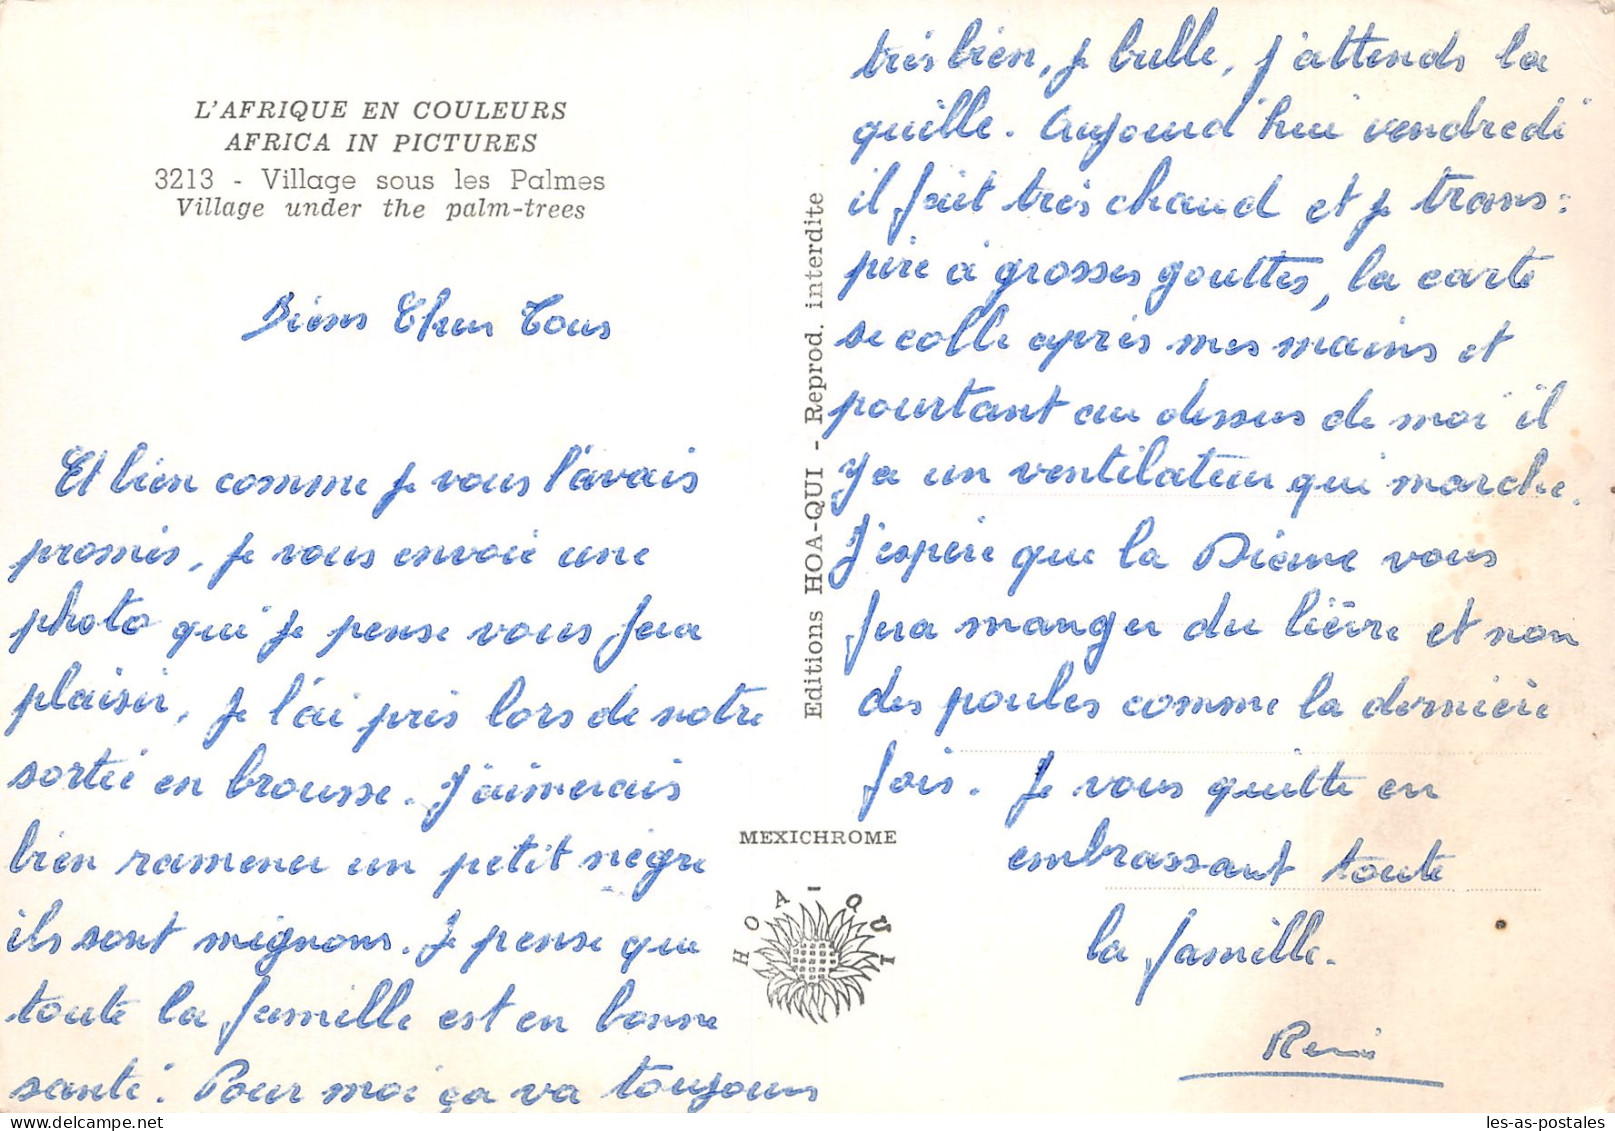 L'AFRIQUE EN COULEURS
AFRICA IN PICTURES
3213 - Village sous les Palmes
Village under the palm-trees
Biens Chers Tous
Et bien comme je vous l'avais
promis, je vous envoie une
photo qui je pense vous fera
plaisir, je l'ai pris lors de notre
sortie en brousse. J'aimerais
bien ramener un petit nègre
ils sont mignons. Je pense que
toute la famille est en bonne
santé. Pour moi ça va toujours
très bien, je bulle, j'attends la
quille. Aujourd'hui vendredi
il fait très chaud et je trans=
pire à grosses gouttes, la carte
se colle après mes mains et
pourtant au dessus de moi il
y a un ventilateur qui marche.
J'espère que la Diane vous
fera manger du lièvre et non
des poules comme la dernière
fois. Je vous quitte en
embrassant toute
la famille.
René
Editions HOA-QUI - Reprod. interdite
MEXICHROME
HOA-QUI
les-as-postales